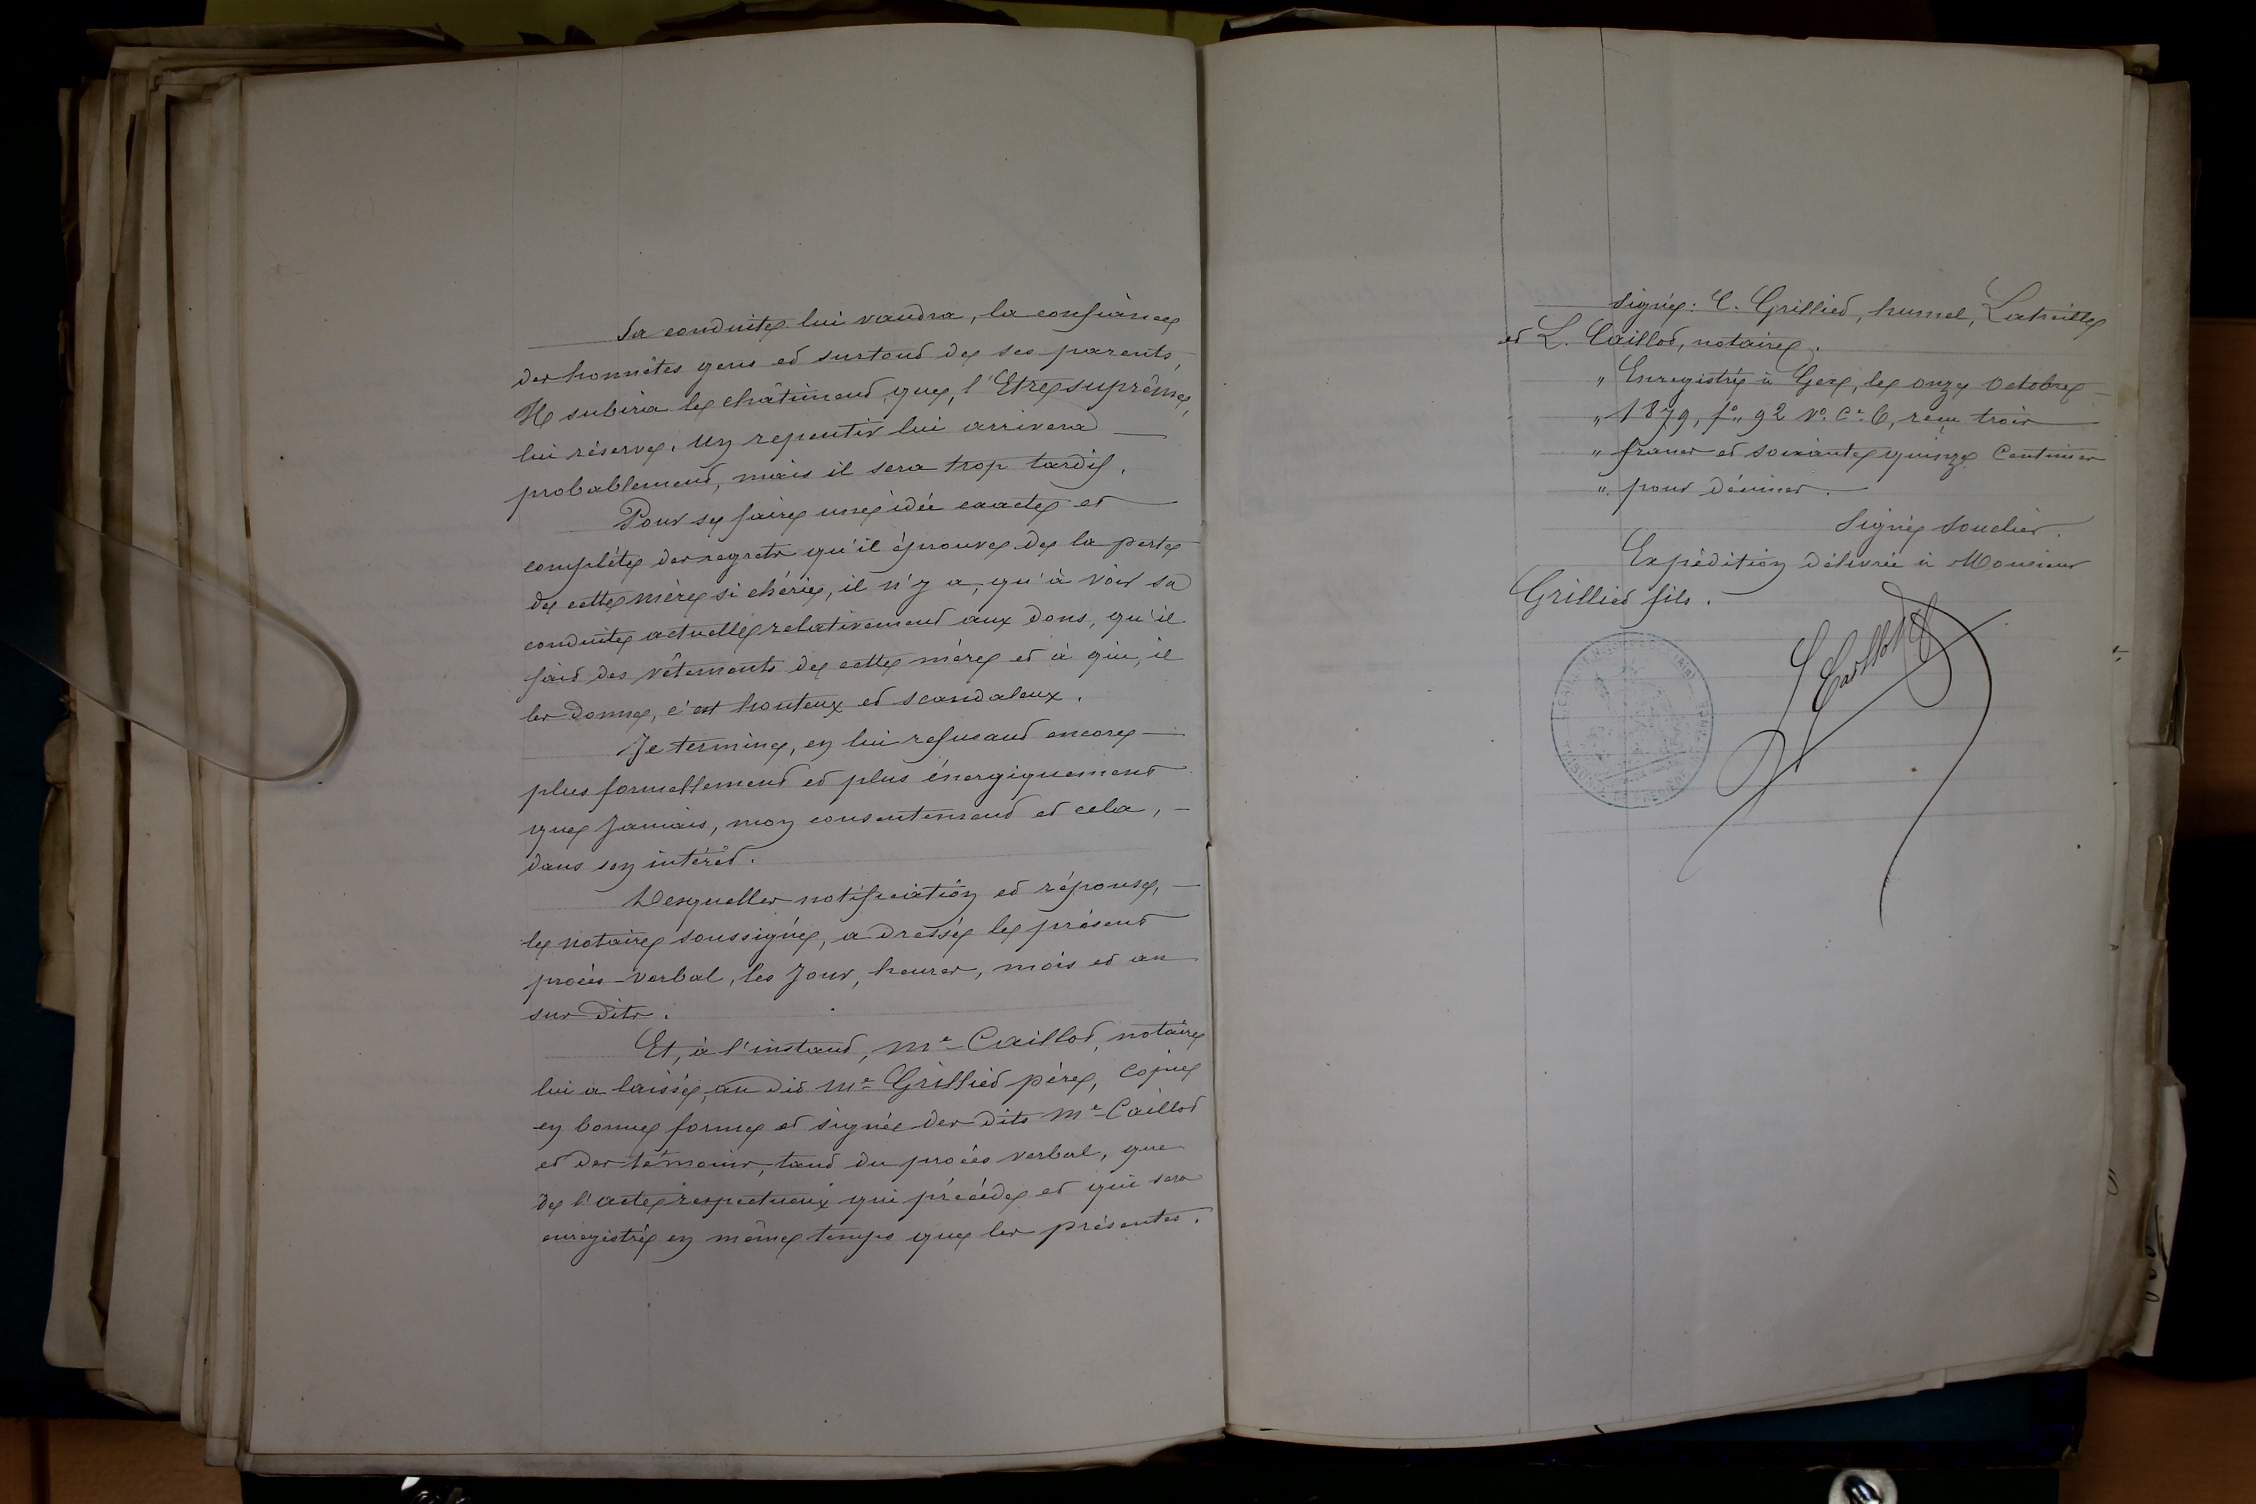 Sa conduite lui vaudra, la confiance
des honnêtes gens et surtout de ses parents,
Il subira le châtiment que, l'Etre suprême,
lui réserve. Un repentir lui arrivera
probablement, mais il sera trop tardif.
Pour se faire une idée exacte et
complète des regrets qu'il éprouve de la perte
de cette mère si chérie, il n'y a, qu'à voir sa
conduite actuelle relativement aux dons, qu'il
fait des vêtements de cette mère et à qui, il
les donne, c'est honteux et scandaleux.
Je termine, en lui refusant encore
plus formellement et plus énergiquement
que jamais, mon consentement et cela,
dans son intérêt.
Desquelles notification et réponse,
le notaire soussigné, a dressé le présent
procès-verbal, les jour, heures, mois et an
sur dits.
Et, à l'instant, Me Caillot, notaire
lui a laissé, au dit Mr Grilliet père, copie
en bonne forme et signée des dits Me Caillot
et des témoins, tant du procès verbal, que
de l'acte respectueux qui précède et qui sera
enregistré en même temps que les présentes.
Signé: C. Grilliet, humel, Latreille
et L. Caillot, notaire.
" Enregistré à Gex, le onze octobre
" 1879, fo 92 Vo. Ce. 6, reçu trois
" francs et soixante quinze centimes
" pour décimes.
Signé Souclier.
Expédition délivrée à Monsieur
Grilliet fils.
L Caillot